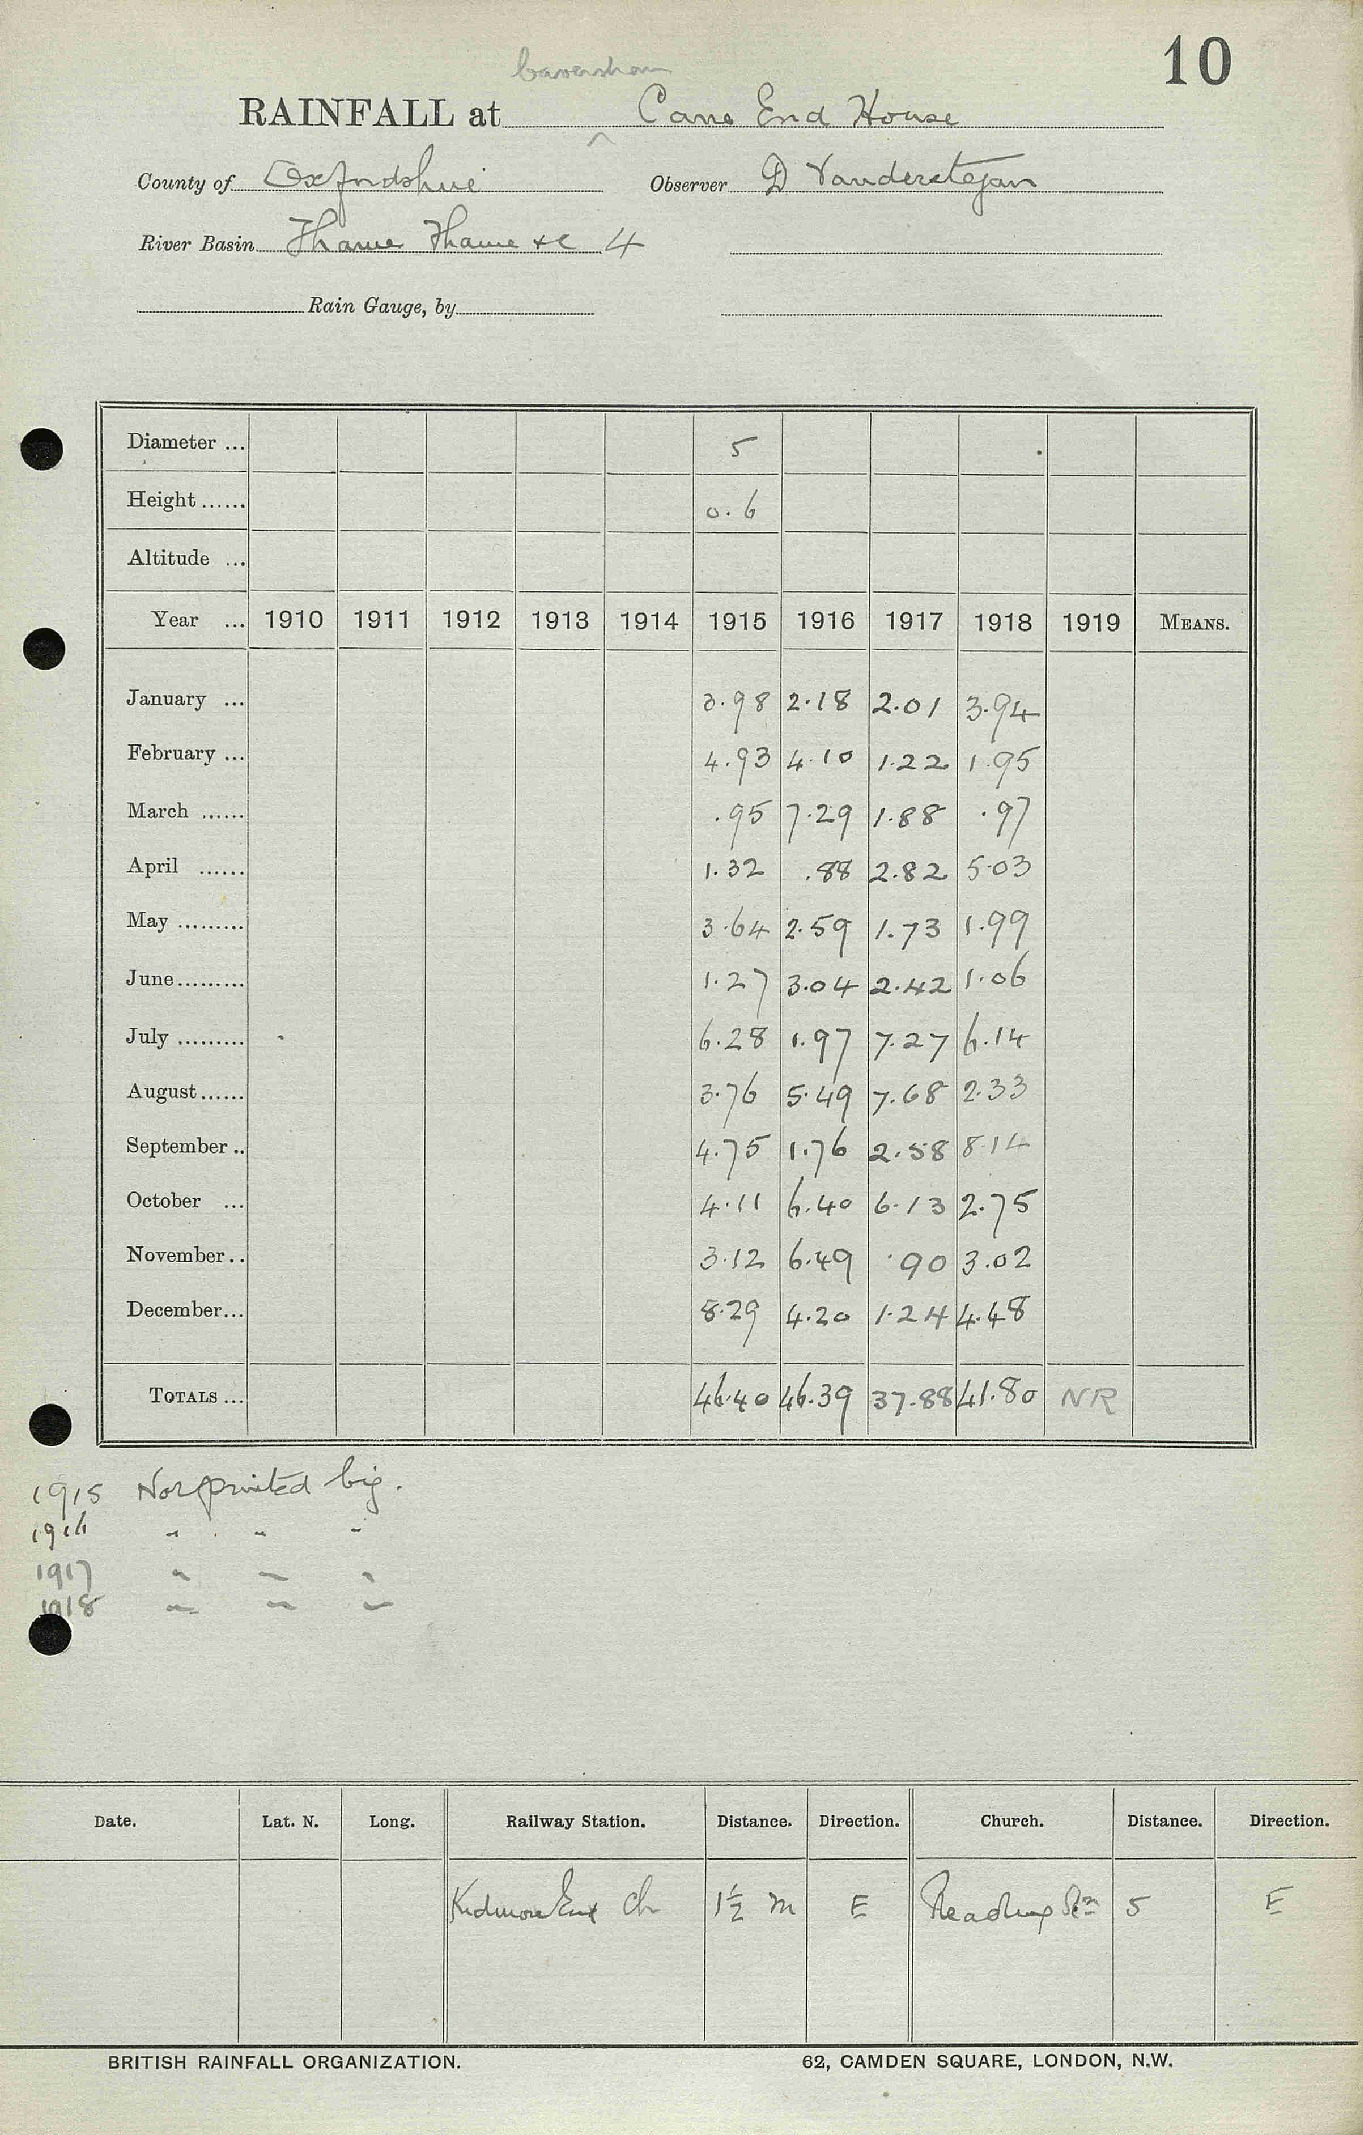 10
Caversham
RAINFALL at Cane End House
County of Oxfordshire Observer D Vanderstegan
River Basin Thame Thame &c 4
Rain Gauge, by
Diameter ... 5
Height ...... 0.6
Altitude ...
Year ... 1910 1911 1912 1913 1914 1915 1916 1917 1918 1919 MEANS.
January ... 3.98 2.18 2.01 3.94
February ... 4.93 4.10 1.22 1.95
March ...... .95 7.29 1.88 .97
April ...... 1.32 .88 2.82 5.03
May ......... 3.64 2.59 1.73 1.99
June ......... 1.27 3.04 2.42 1.06
July ......... 6.28 1.97 7.27 6.14
August ...... 3.76 5.49 7.68 2.33
September .. 4.75 1.76 2.58 8.14
October ... 4.11 6.40 6.13 2.75
November .. 3.12 6.49 .90 3.02
December ... 8.29 4.20 1.24 4.48
TOTALS ... 46.40 46.39 37.88 41.80 NR
1915 Not printed big.
1916 " " "
1917 " " "
1918 " " "
Date. Lat. N. Long. Railway Station. Distance. Direction. Church. Distance. Direction.
Kidmore End Ch 1½ m E Reading Stn 5 E
BRITISH RAINFALL ORGANIZATION. 62, CAMDEN SQUARE, LONDON, N.W.